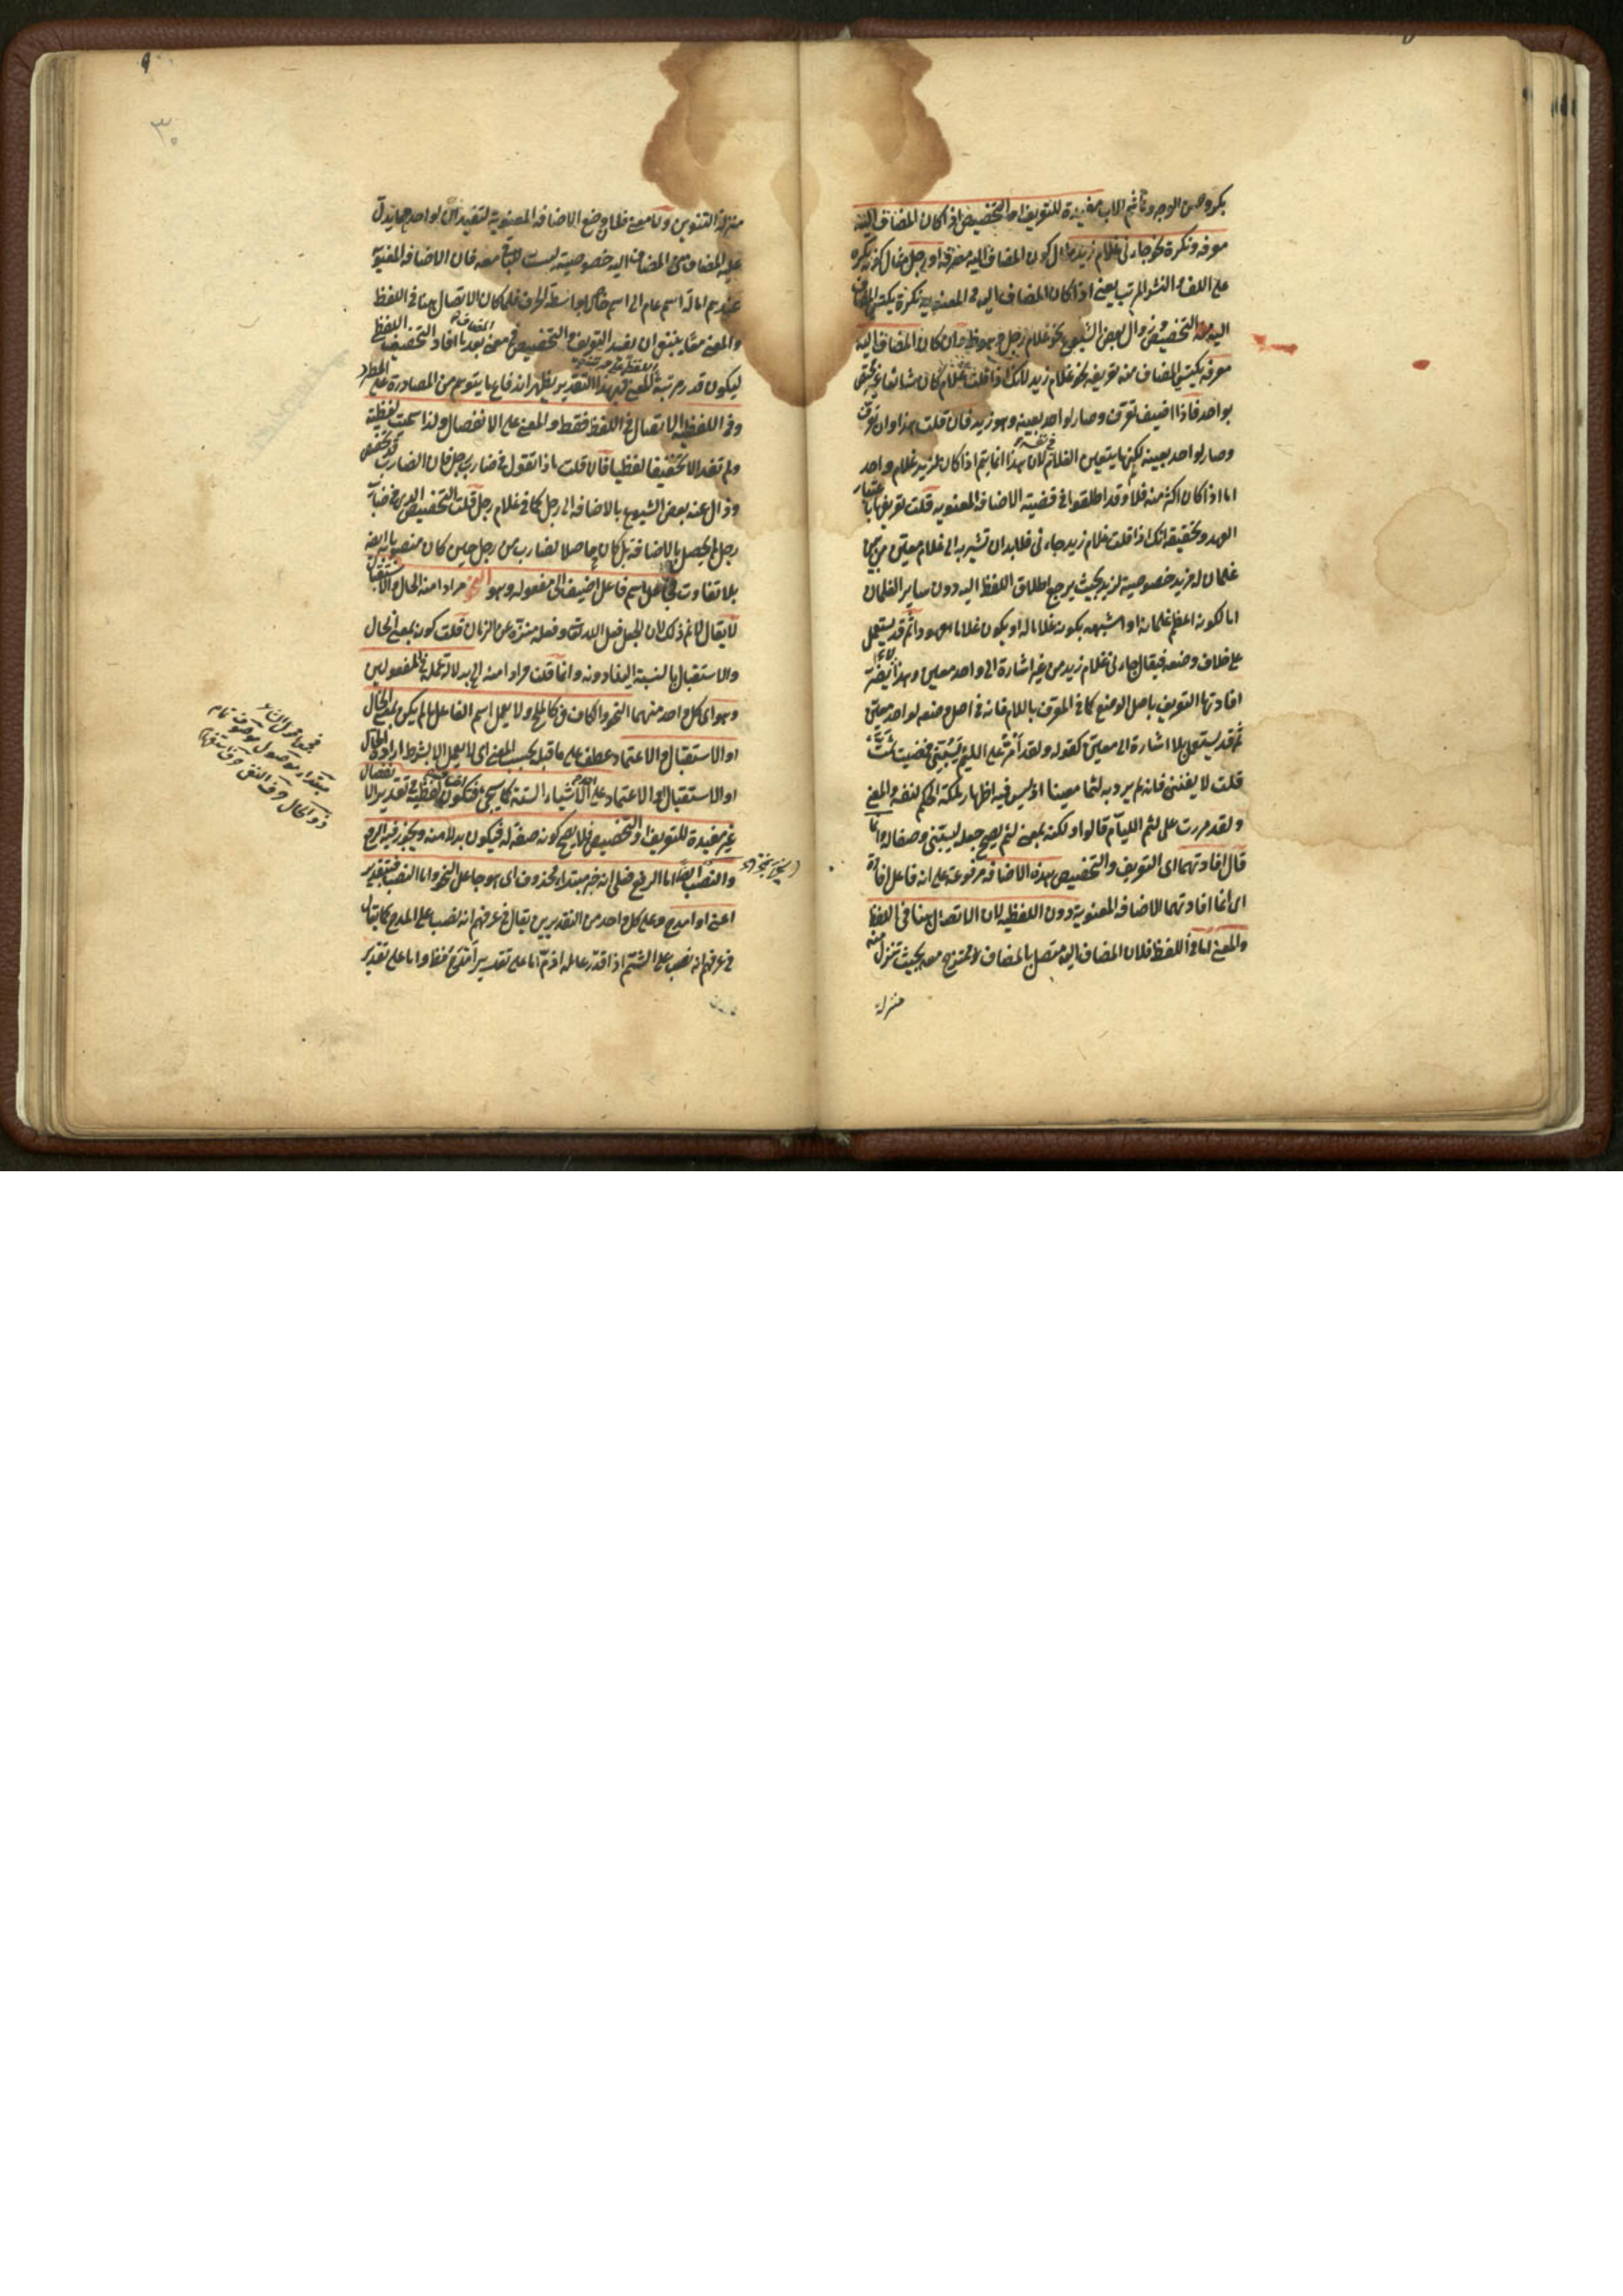 بكر وحسن الوجه وخاتم الاب مفيدة للتعريف او التخصيص اذا كان المضاف اليه
معرفة ونكرة نحو جاءنى غلام زيد مثال كون المضاف اليه معرفة او رجل مثال كونه نكرة
على اللف والنشر المرتب يعنى اذا كان المضاف اليه فى المعنوية نكرة يكتسى المضاف
اليه منه التخصيص وزوال بعض الشيوع نحو غلام رجل وهو ظ وان كان المضاف اليه
معرفة يكتسى المضاف منه تعريفه نحو غلام زيد لانك اذا قلت غلام كان شائعا غير مختص
بواحد فاذا اضيف تعرف وصار لواحد بعينه وهو زيد فان قلت هذا وان تعرف
وصار لواحد بعينه لكن ما يتعين الغلام فى نفسه لان هذا انما يتم اذا كان لزيد غلام واحد
اما اذا كان اكثر منه فلا وقد اطلقوا فى قضية الاضافة المعنوية قلت تعريفها باعتبار
العهد وتحقيقه انك اذا قلت غلام زيد جاءنى فلابد ان تشير به الى غلام معين من بين
غلمان له مزيد خصوصية لزيد بحيث يرجع اطلاق اللفظ اليه دون ساير الغلمان
اما لكونه اعظم غلمانه او اشتهر بكونه غلاما له او يكون غلاما معهودا ثم قد يستعمل
على خلاف وضعه فيقال جاءنى غلام زيد من غير اشارة الى واحد معين وهذا لا يضر
افادتها التعريف باصل الوضع كما فى المعرف باللام فانه فى اصل وضعه لواحد معين
ثم قد يستعمل بلا اشارة الى معين كقوله ولقد أمر على اللئيم يسبنى فمضيت ثمت
قلت لا يعنينى فانه لم يرد به لئيما معينا اذ ليس فيه اظهار ملكة الحكم لنفسه والمعنى
ولقد مررت على لئيم الليآم قالوا ولكنه بمعنى لئيم يصح جعل يسبنى وصفا له وانما
قال افادتهما اى التعريف والتخصيص هذه الاضافة مرفوعة على انه فاعل افادة
اى انما افادتهما الاضافة المعنوية دون اللفظية لان الاتصال هنا فى اللفظ
والمعنى اما فى اللفظ فلان المضاف اليه متصل بالمضاف وممتزج معه بحيث تنزل منه
منزلة
منزلة التنوين واما معنى فلان وضع الاضافة المعنوية لتفيد ان لواحد مما يدل
عليه المضاف مع المضاف اليه خصوصية ليست للباقى معه فان الاضافة المعنوية
عندهم امالة اسم عام الى اسم خاص بواسطة الحرف فلما كان الاتصال هنا فى اللفظ
والمعنى معا ينبغى ان يفيد التعريف والتخصيص فى معنى المضاف بعد ما افاد التخفيف فى اللفظ
ليكون قدر مرتبة المعنى فبهذا التقدير يظهر اندفاع ما يتوهم من المصادرة على المط
وفى اللفظية الاتصال فى اللفظ فقط والمعنى على الانفصال ولذا سميت لفظية
ولم تفد الا تخفيفا لفظيا فان قلت ماذا تقول فى ضارب رجل فان الضارب قد تخصص
وزال عنه بعض الشيوع بالاضافة الى رجل كما فى غلام رجل قلت التخصيص الذى فى ضارب
رجل لم يحصل بالاضافة بل كان حاصلا لضارب من رجل حين كان منصوبا به ايضا
بلا تفاوت فجاعل اسم فاعل اضيف الى مفعوله وهو النحو مرادا منه الحال والاستقبال
لا يقال لا نم ذلك لان الجعل فعل الله تعالى وفعله منزه عن الزمان قلت كونه بمعنى الحال
والاستقبال بالنسبة الينا دونه وانما قلت مرادا منه الخ بدلالة عمله فى المفعولين
وهو اى كل واحد منهما النحو والكاف فى كالملح ولا يعمل اسم الفاعل ما لم يكن بمعنى الحال
او الاستقبال والاعتماد عطف على ما قبل بحسب المعنى اى لا يعمل الا بشرط ارادة الحال
او الاستقبال والاعتماد على احد الاشياء الستة كما سيجئ فتكون اضافته لفظية فى تقدير الانفصال
غير مفيدة للتعريف او التخصيص فلا يصح كونه صفة له فيكون بدلا منه ويجوز فيه الرفع
والنصب ايضا اما الرفع فعلى انه خبر مبتداء محذوف اى هو جاعل النحو واما النصب فبتقدير
اعنى او امدح وعلى كل واحد من التقديرين يقال فى عرفهم انه نصب على المدح كما يقال
فى عرفهم انه نصب على الشتم اذا قدر عامله اذم اما على تقدير أمدح فظ واما على تقدير